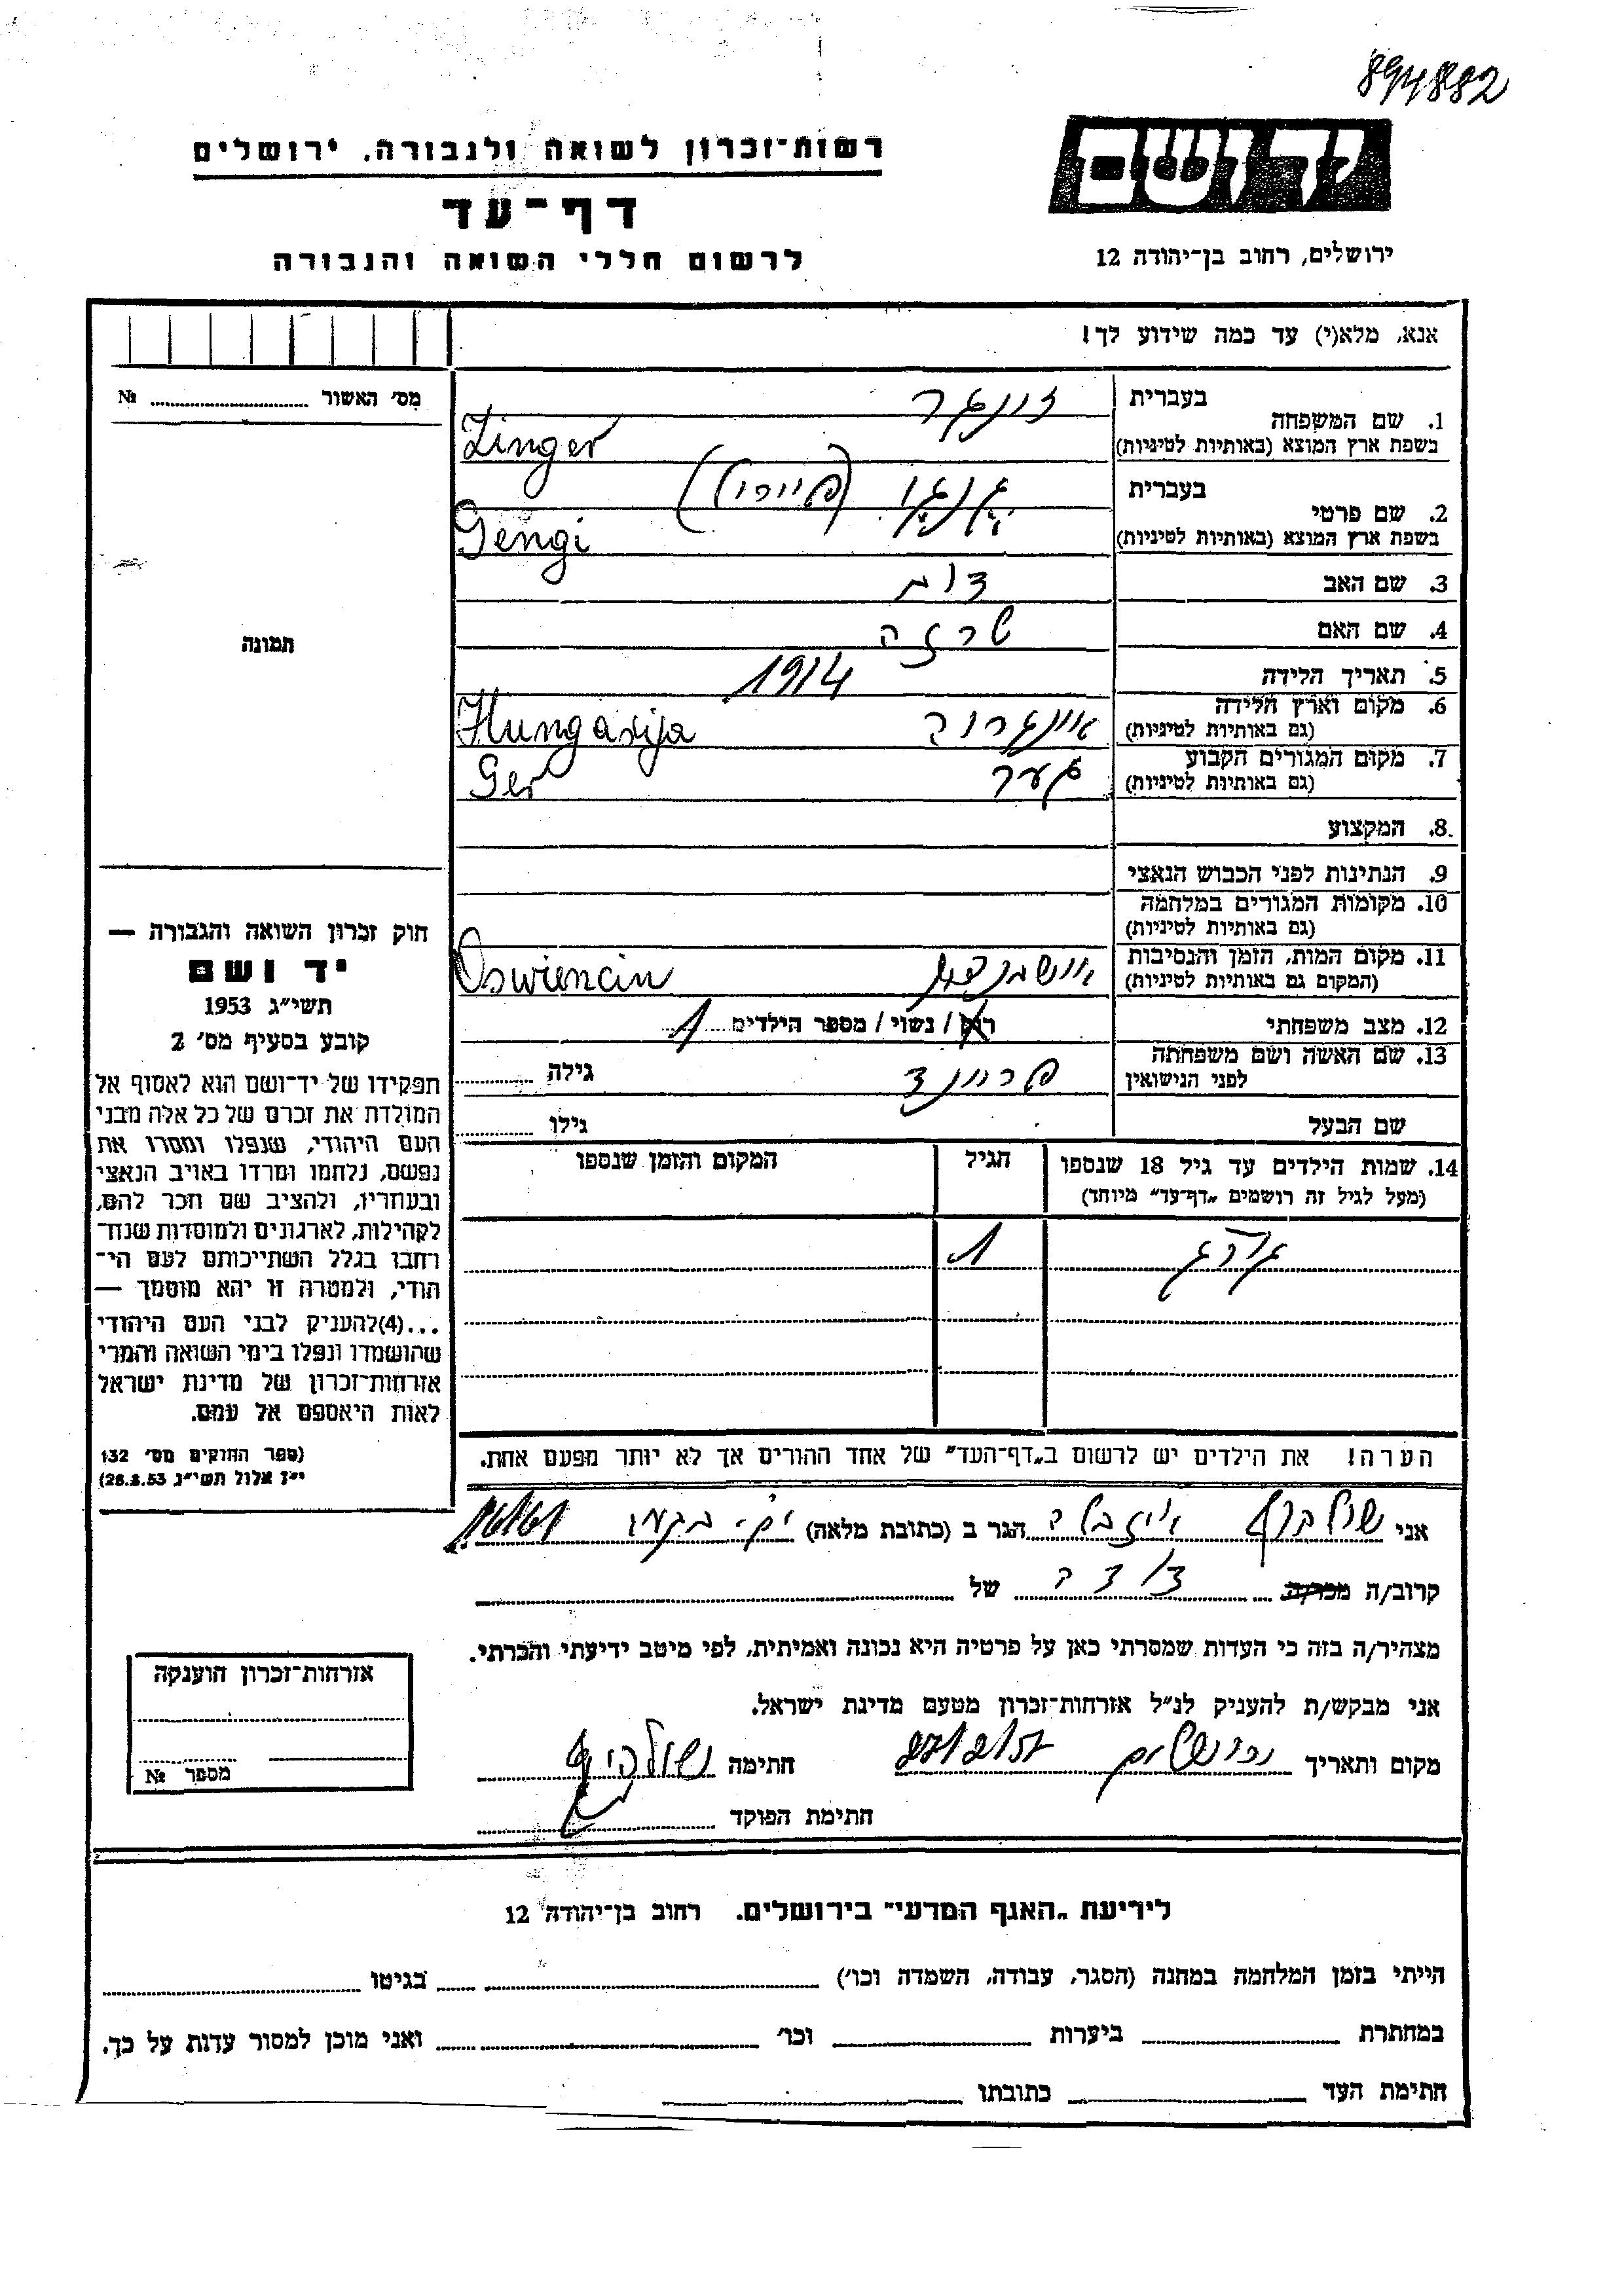 894882
רשות־זכרון לשואה ולגבורה, ירושלים
דף־עד
לרשום חללי השואה והגבורה
יד ושם
ירושלים, רחוב בן־יהודה 12
אנא, מלא(י) עד כמה שידוע לך!
מס' האשור № 
1. שם המשפחה בעברית זינגר
בשפת ארץ המוצא (באותיות לטיניות) Zinger
2. שם פרטי בעברית
בשפת ארץ המוצא (באותיות לטיניות) Gengi
3. שם האב
4. שם האם
5. תאריך הלידה 1914
6. מקום וארץ הלידה
(גם באותיות לטיניות) Hungarija
7. מקום המגורים הקבוע גער
(גם באותיות לטיניות) Ger
8. המקצוע
9. הנתינות לפני הכבוש הנאצי
10. מקומות המגורים במלחמה
(גם באותיות לטיניות)
11. מקום המות, הזמן והנסיבות
(המקום גם באותיות לטיניות) Oswiencin
12. מצב משפחתי רוק / נשוי / מספר הילדים 1
13. שם האשה ושם משפחתה
לפני הנישואין גילה
שם הבעל גילו
14. שמות הילדים עד גיל 18 שנספו הגיל המקום והזמן שנספו
(מעל לגיל זה רושמים "דף־עד" מיוחד)
1
הערה! את הילדים יש לרשום ב"דף־העד" של אחד ההורים אך לא יותר מפעם אחת.
תמונה
חוק זכרון השואה והגבורה —
יד ושם
תשי"ג 1953
קובע בסעיף מס' 2
תפקידו של יד־ושם הוא לאסוף אל
המולדת את זכרם של כל אלה מבני
העם היהודי, שנפלו ומסרו את
נפשם, נלחמו ומרדו באויב הנאצי
ובעוזריו, ולהציב שם וזכר להם,
לקהילות, לארגונים ולמוסדות שנח־
רבו בגלל השתייכותם לעם הי־
הודי, ולמטרה זו יהא מוסמך —
...(4)להעניק לבני העם היהודי
שהושמדו ונפלו בימי השואה והמרי
אזרחות־זכרון של מדינת ישראל
לאות היאספם אל עמם.
(ספר החוקים מס' 132
י"ז אלול תשי"ג 28.8.53)
אני הגר ב (כתובת מלאה)
קרוב/ה מכר/ה דודה של
מצהיר/ה בזה כי העדות שמסרתי כאן על פרטיה היא נכונה ואמיתית, לפי מיטב ידיעתי והכרתי.
אני מבקש/ת להעניק לנ"ל אזרחות־זכרון מטעם מדינת ישראל.
מקום ותאריך חתימה
חתימת הפוקד
אזרחות־זכרון הוענקה
מספר №
לידיעת "האגף המדעי" בירושלים. רחוב בן־יהודה 12
הייתי בזמן המלחמה במחנה (הסגר, עבודה, השמדה וכו') בגיטו
במחתרת ביערות וכו' ואני מוכן למסור עדות על כך.
חתימת העד כתובתו